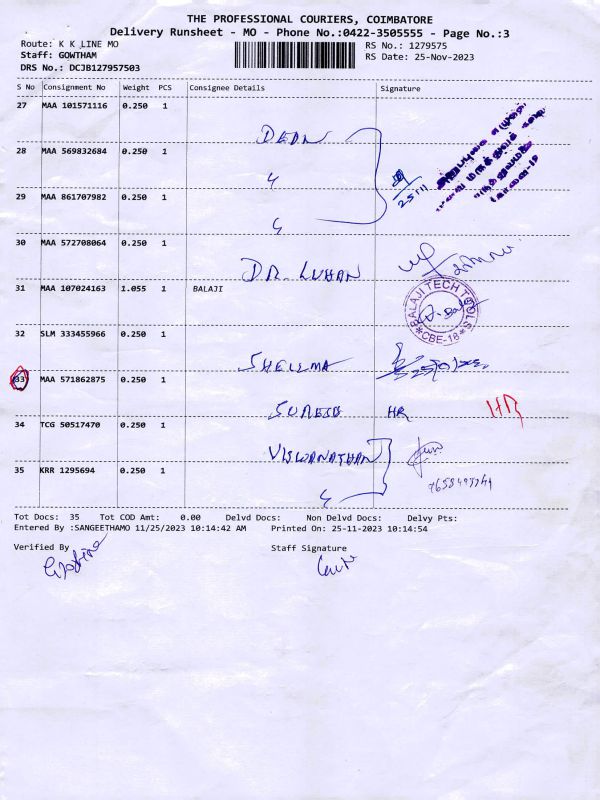 THE PROFESSIONAL COURIERS, COIMBATORE
Delivery Runsheet - MO - Phone No.:0422-3505555 - Page No.:3
Route: K K LINE MO
RS No.: 1279575
Staff: GOWTHAM
RS Date: 25-Nov-2023
DRS No.: DCJB127957503
S No Consignment No Weight PCS Consignee Details Signature
27 MAA 101571116 0.250 1
DEAN
28 MAA 569832684 0.250 1
25/11
29 MAA 861707982 0.250 1
30 MAA 572708064 0.250 1
DR. LUHAN
31 MAA 107024163 1.055 1 BALAJI
BALAJI TECH TOOLS
CBE-18
32 SLM 333455966 0.250 1
33 MAA 571862875 0.250 1
SURESH HR HR
34 TCG 50517470 0.250 1
VISWANATHAN
35 KRR 1295694 0.250 1
Tot Docs: 35 Tot COD Amt: 0.00 Delvd Docs: Non Delvd Docs: Delvy Pts:
Entered By :SANGEETHAMO 11/25/2023 10:14:42 AM Printed On: 25-11-2023 10:14:54
Verified By Staff Signature